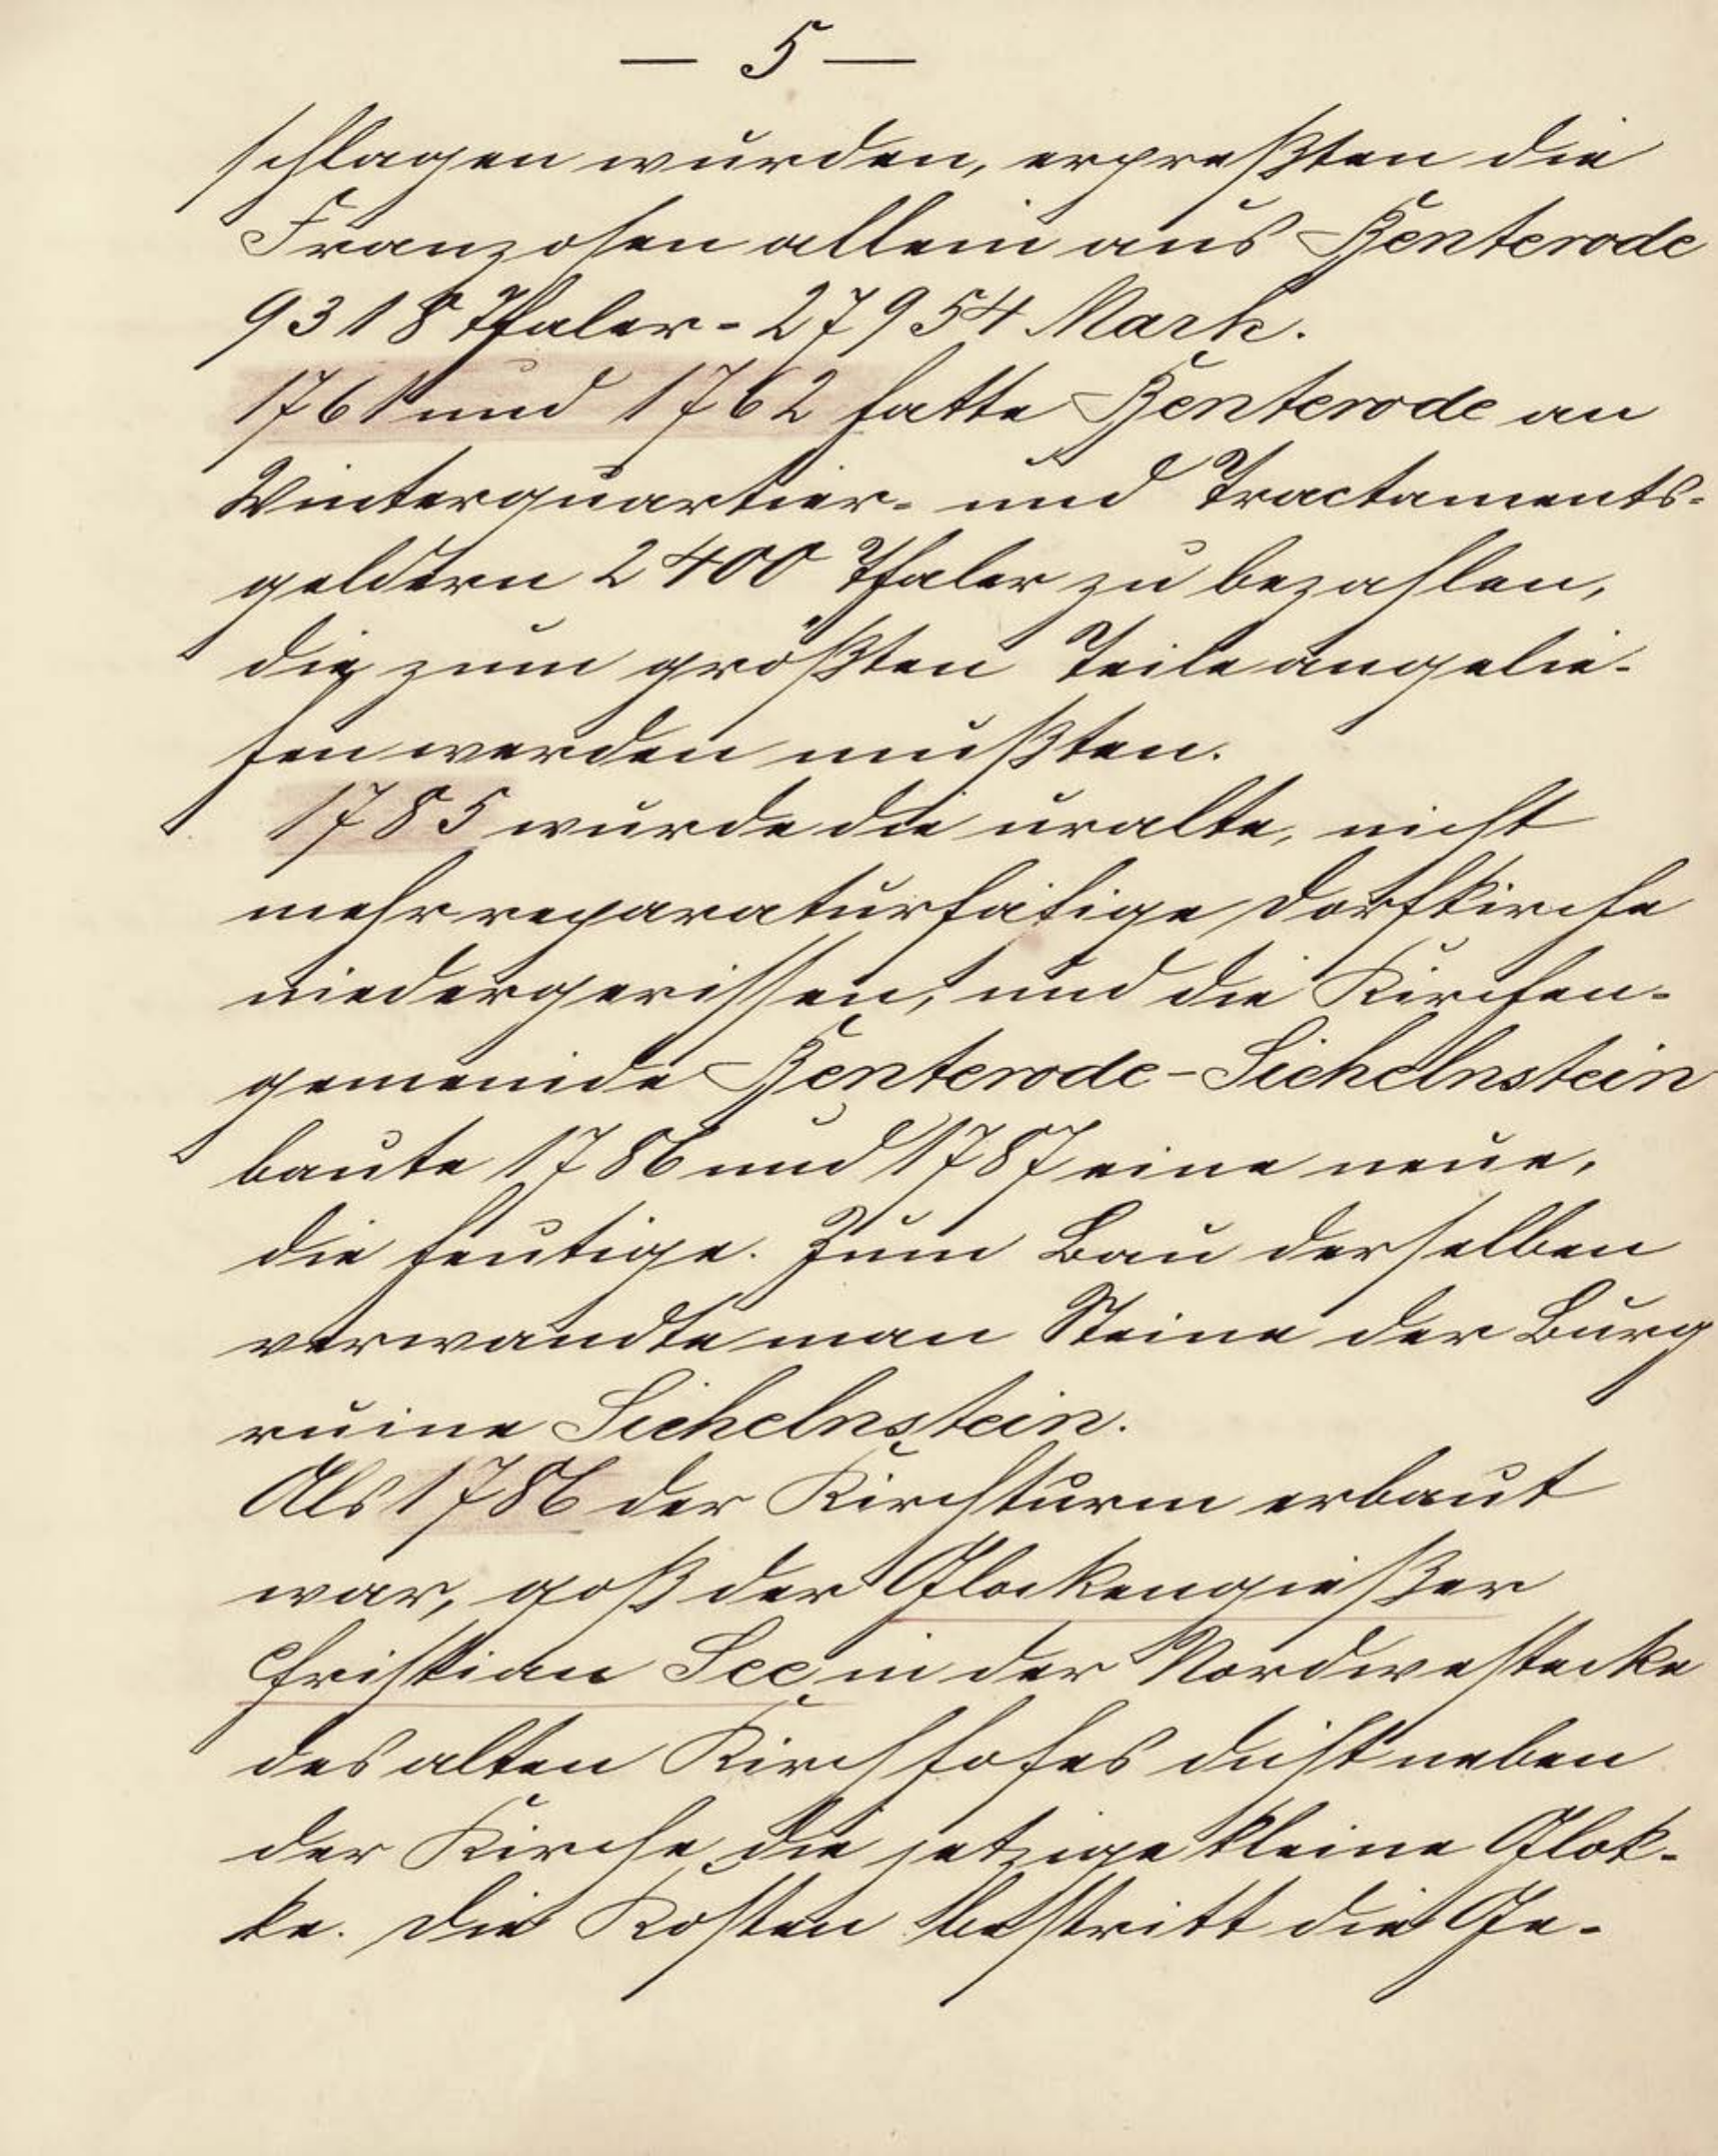 — 5 —
schlagen wurden, erpreßten die
Franzosen allein aus Benterode
9318 Thaler = 27954 Mark.
1761 und 1762 hatte Benterode an
Winterquartier- und Tractaments-
geldern 2400 Thaler zu bezahlen,
die zum größten Teile angelie-
hen werden mußten.
1785 wurde die uralte, nicht
mehr reparaturfähige Dorfkirche
niedergerissen, und die Kirchen-
gemeinde Benterode-Sichelnstein
baute 1786 und 1787 eine neue,
die heutige. Zum Bau derselben
verwandte man Steine der Burg
ruine Sichelnstein.
Als 1786 der Kirchturm erbaut
war, goß der Glockengießer
Christian See in der Nordwestecke
des alten Kirchhofes dicht neben
der Kirche die jetzige kleine Glok-
ke. Die Kosten bestritt die Ge-